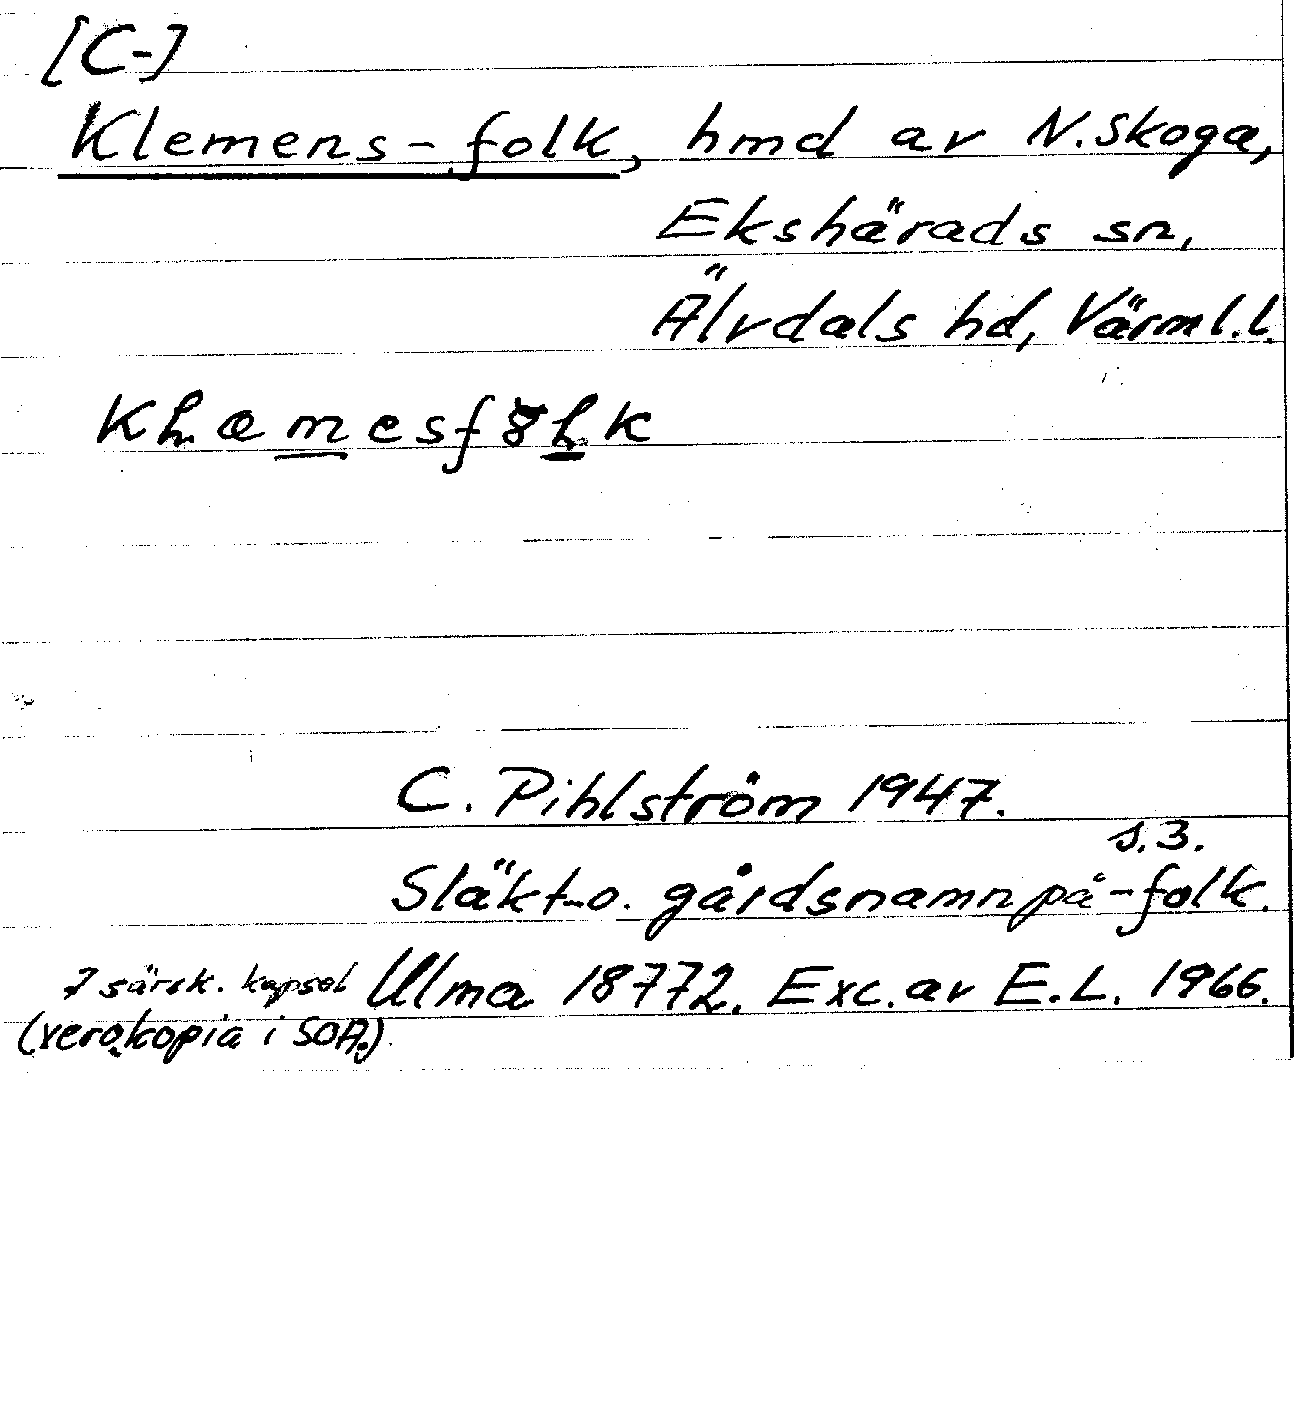 [C-]
Klemens-folk, hmd av N. Skoga,
Ekshärads sn,
Älvdals hd, Värml. l.
C. Pihlström 1947.
s. 3.
Släkt- o. gårdsnamn på -folk.
7 särsk. kapsel Ulma 18772. Exc. av E.L. 1966.
(xerokopia i SOA.)